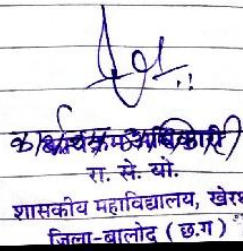 कार्यक्रम अधिकारी
रा. से. यो.
शासकीय महाविद्यालय,
जिला-बालोद (छ.ग)